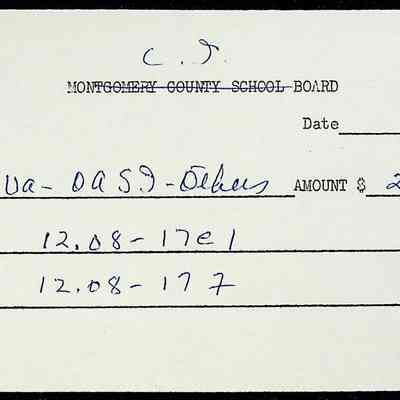 C. I.
MONTGOMERY COUNTY SCHOOL BOARD
Date
Va - OASI - Others AMOUNT $ 2
12.08 - 17e1
12.08 - 17 7